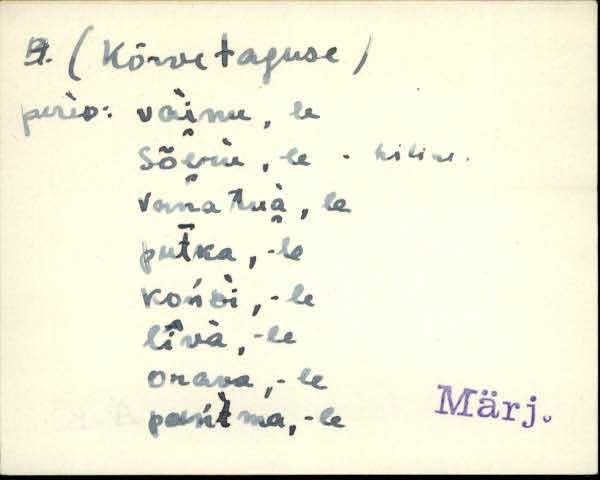 (Kõrvetaguse)
perès: vài̭nu, le
sõḙrù, le - hiline.
vana tuà̭, le
put̄ka, -le
końnì, -le
lîvà, -le
orava, -le
pańtma, -le
Märj.